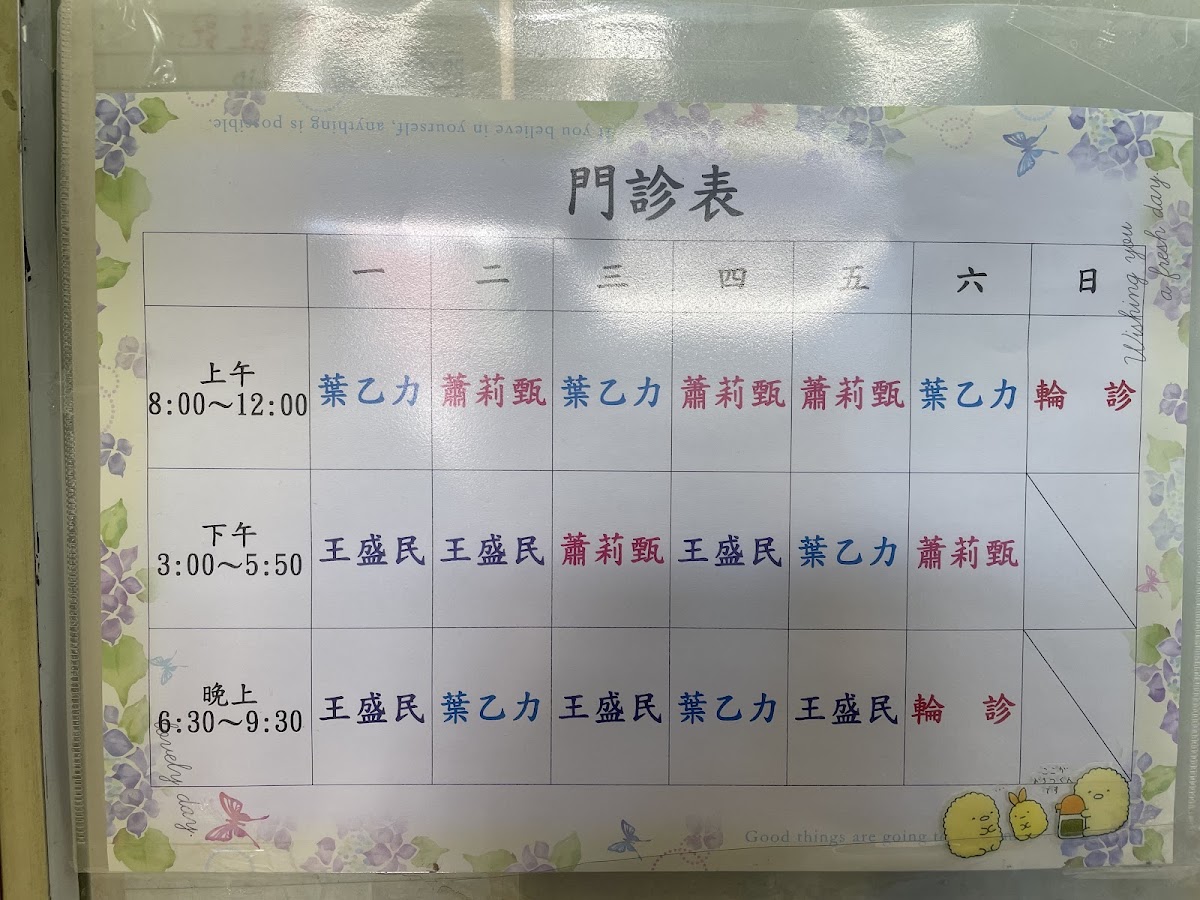 If you believe in yourself, anything is possible.
門診表
Wishing you
a fresh day.
一 二 三 四 五 六 日
上午
8:00～12:00 葉乙力 蕭莉甄 葉乙力 蕭莉甄 蕭莉甄 葉乙力 輪 診
下午
3:00～5:50 王盛民 王盛民 蕭莉甄 王盛民 葉乙力 蕭莉甄
晚上
6:30～9:30 王盛民 葉乙力 王盛民 葉乙力 王盛民 輪 診
lovely day.
Good things are going